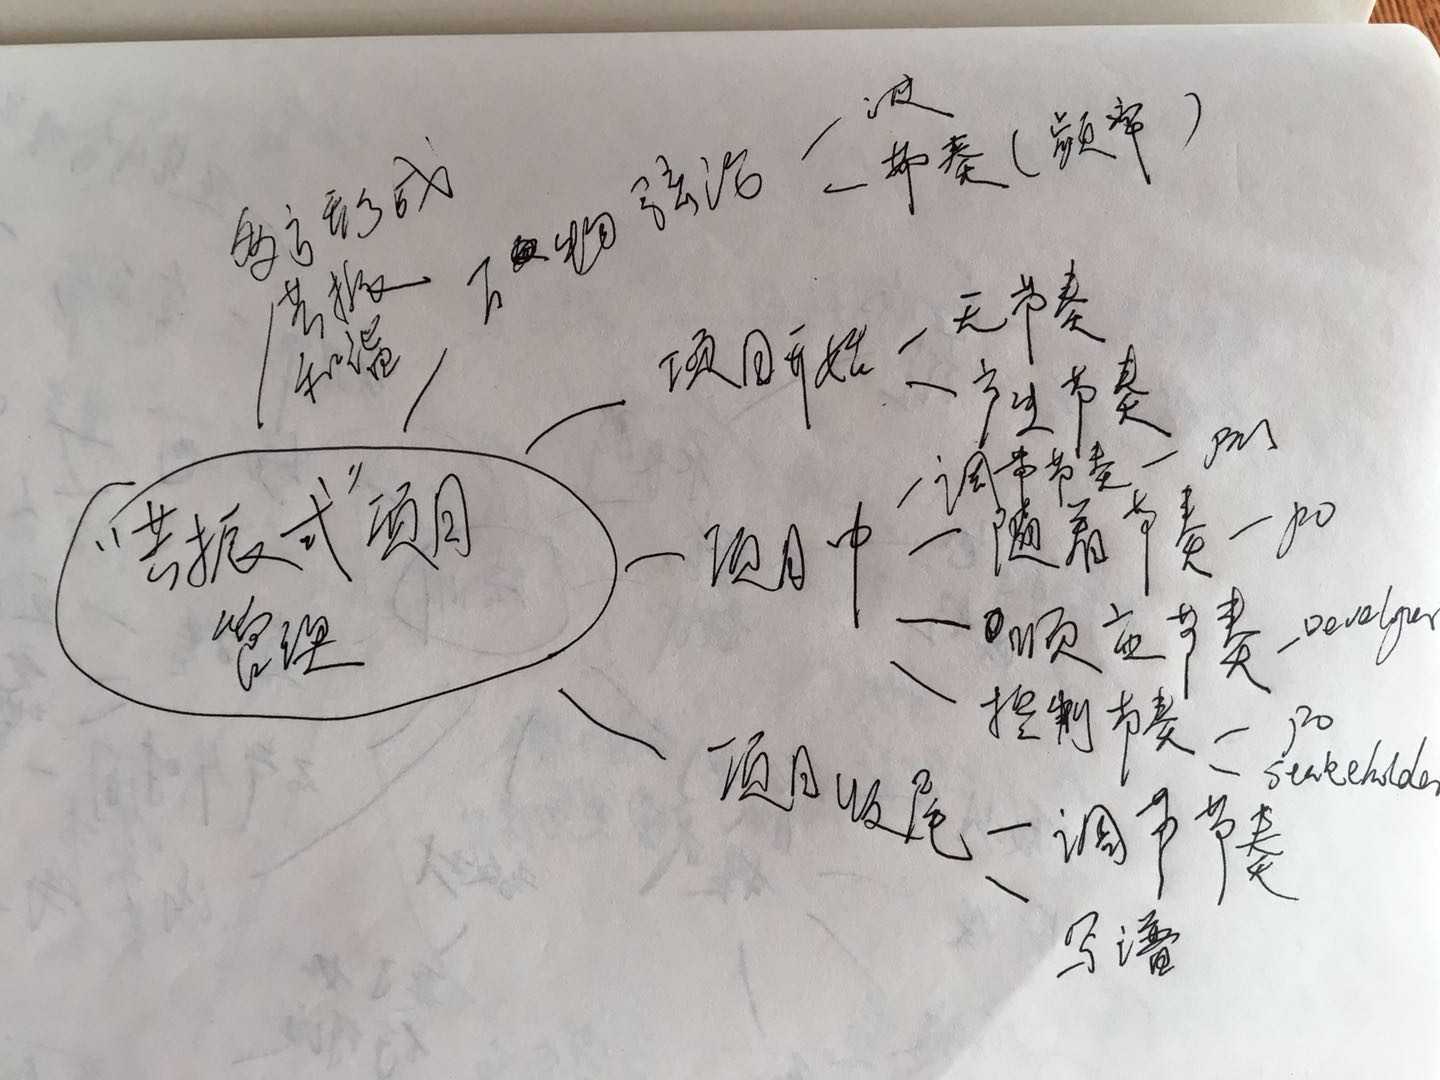 形成
共振
和谐
万物弦论
波
节奏(频率)
"共振式"项目
管理
项目开始
无节奏
产生节奏
项目中
调节节奏 - PM
随着节奏 - PO
顺应节奏 - Developer
控制节奏
PO
Stakeholder
项目收尾
调节节奏
写谱